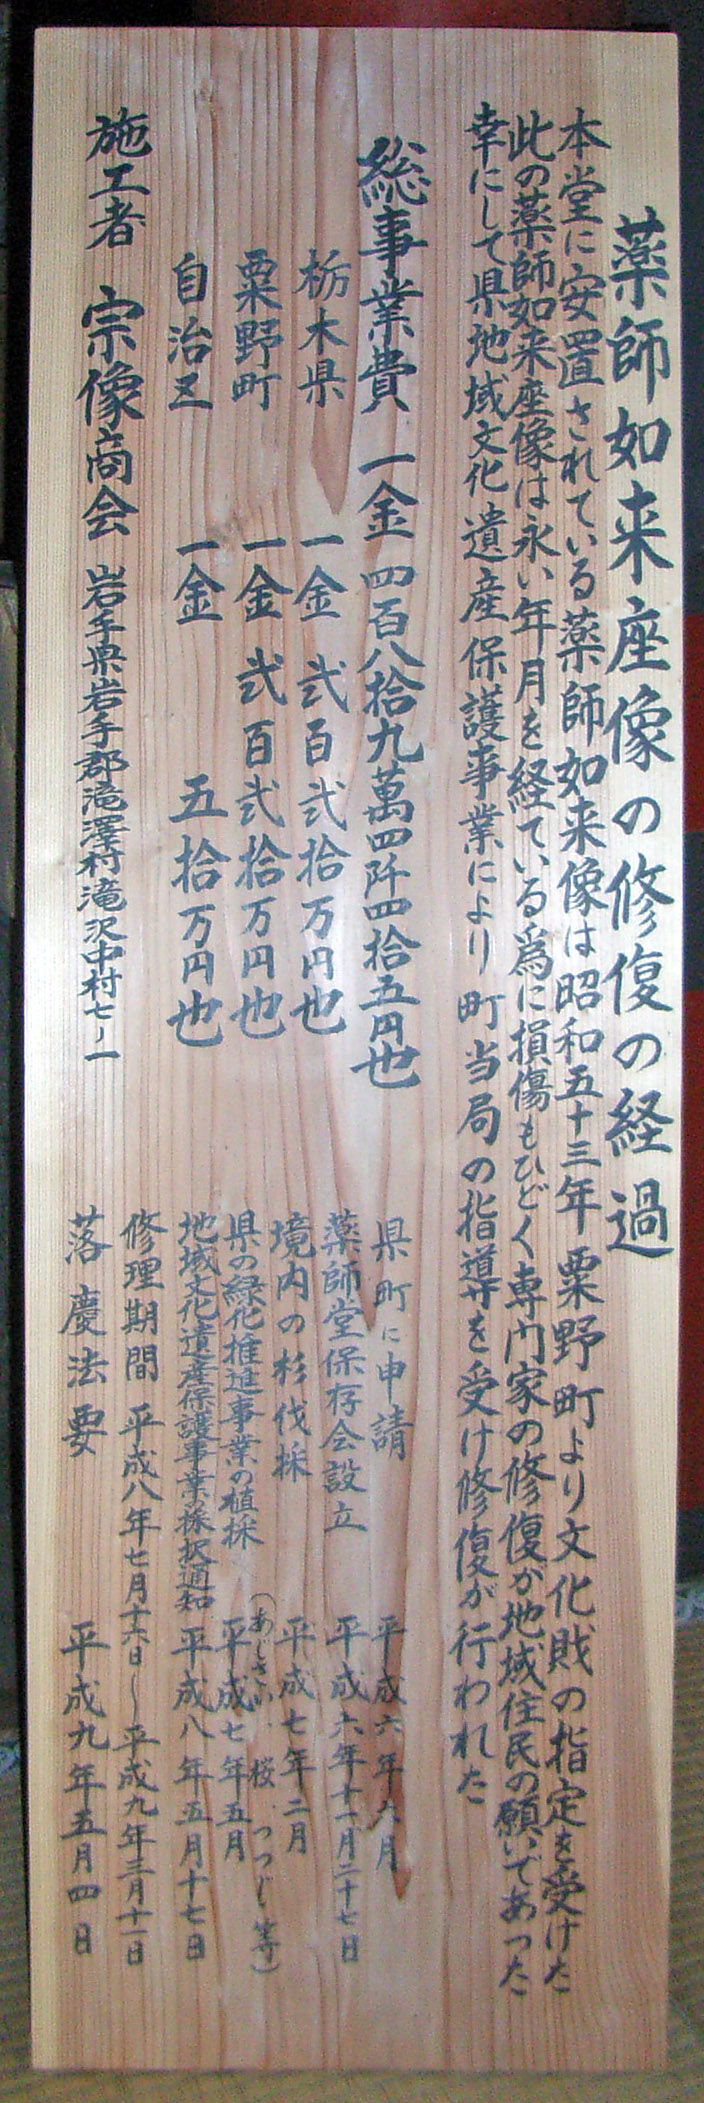 薬師如来座像の修復の経過
本堂に安置されている薬師如来像は昭和五十三年粟野町より文化財の指定を受けた
此の薬師如来座像は永い年月を経ている為に損傷もひどく専門家の修復が地域住民の願いであった
幸にして県地域文化遺産保護事業により町当局の指導を受け修復が行われた
総事業費 一金四百八拾九萬四阡四拾五円也
栃木県 一金弐百弐拾万円也
粟野町 一金弐百弐拾万円也
自治区 一金五拾万円也
施工者 宗像商会 岩手県岩手郡滝澤村滝沢中村七ノ一
県町に申請 平成六年六月
薬師堂保存会設立 平成六年十一月二十七日
境内の杉伐採 平成七年二月
県の緑化推進事業の植採 平成七年五月
(あじさい、桜、つつじ等)
地域文化遺産保護事業の採択通知 平成八年五月十七日
修理期間 平成八年七月十六日〜平成九年三月十一日
落慶法要 平成九年五月四日